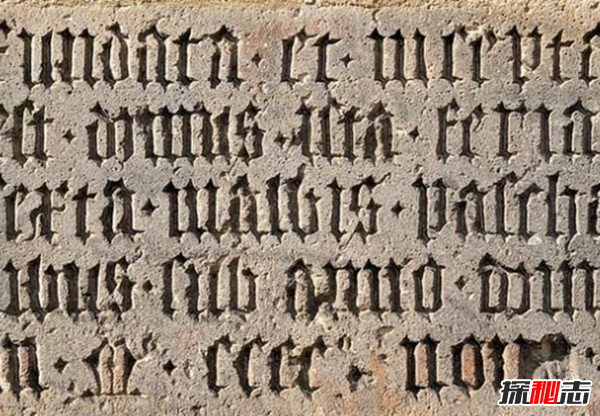 fundata · et · incept
est · domus · ista · feria
sexta · in albis · pascha
ibus · sub · anno · domi
M · cccc · non
探秘志